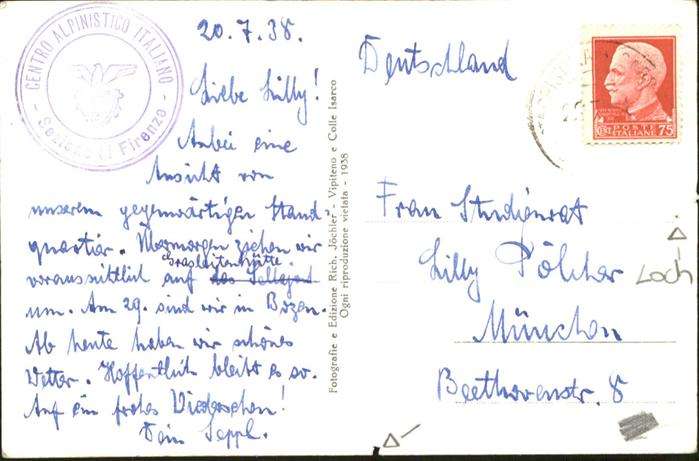 CENTRO ALPINISTICO ITALIANO
- Sezione di Firenze -
20.7.38.
Liebe Lilly!
Anbei eine
Ansicht von
unserem gegenwärtigen Stand-
quartier. Übermorgen ziehen wir
Grasleitenhütte.
voraussichtlich auf das
um. Am 29. sind wir in Bozen.
Ab heute haben wir schönes
Wetter. Hoffentlich bleibt es so.
Auf ein frohes Wiedersehen!
Dein Seppl.
Fotografie e Edizione Rich. Jöchler - Vipiteno e Colle Isarco
Ogni riproduzione vietata - 1938
Deutschland
POSTE
ITALIANE
75
Frau Studienrat
Lilly Pölcher
Loch
München
Beethovenstr. 8